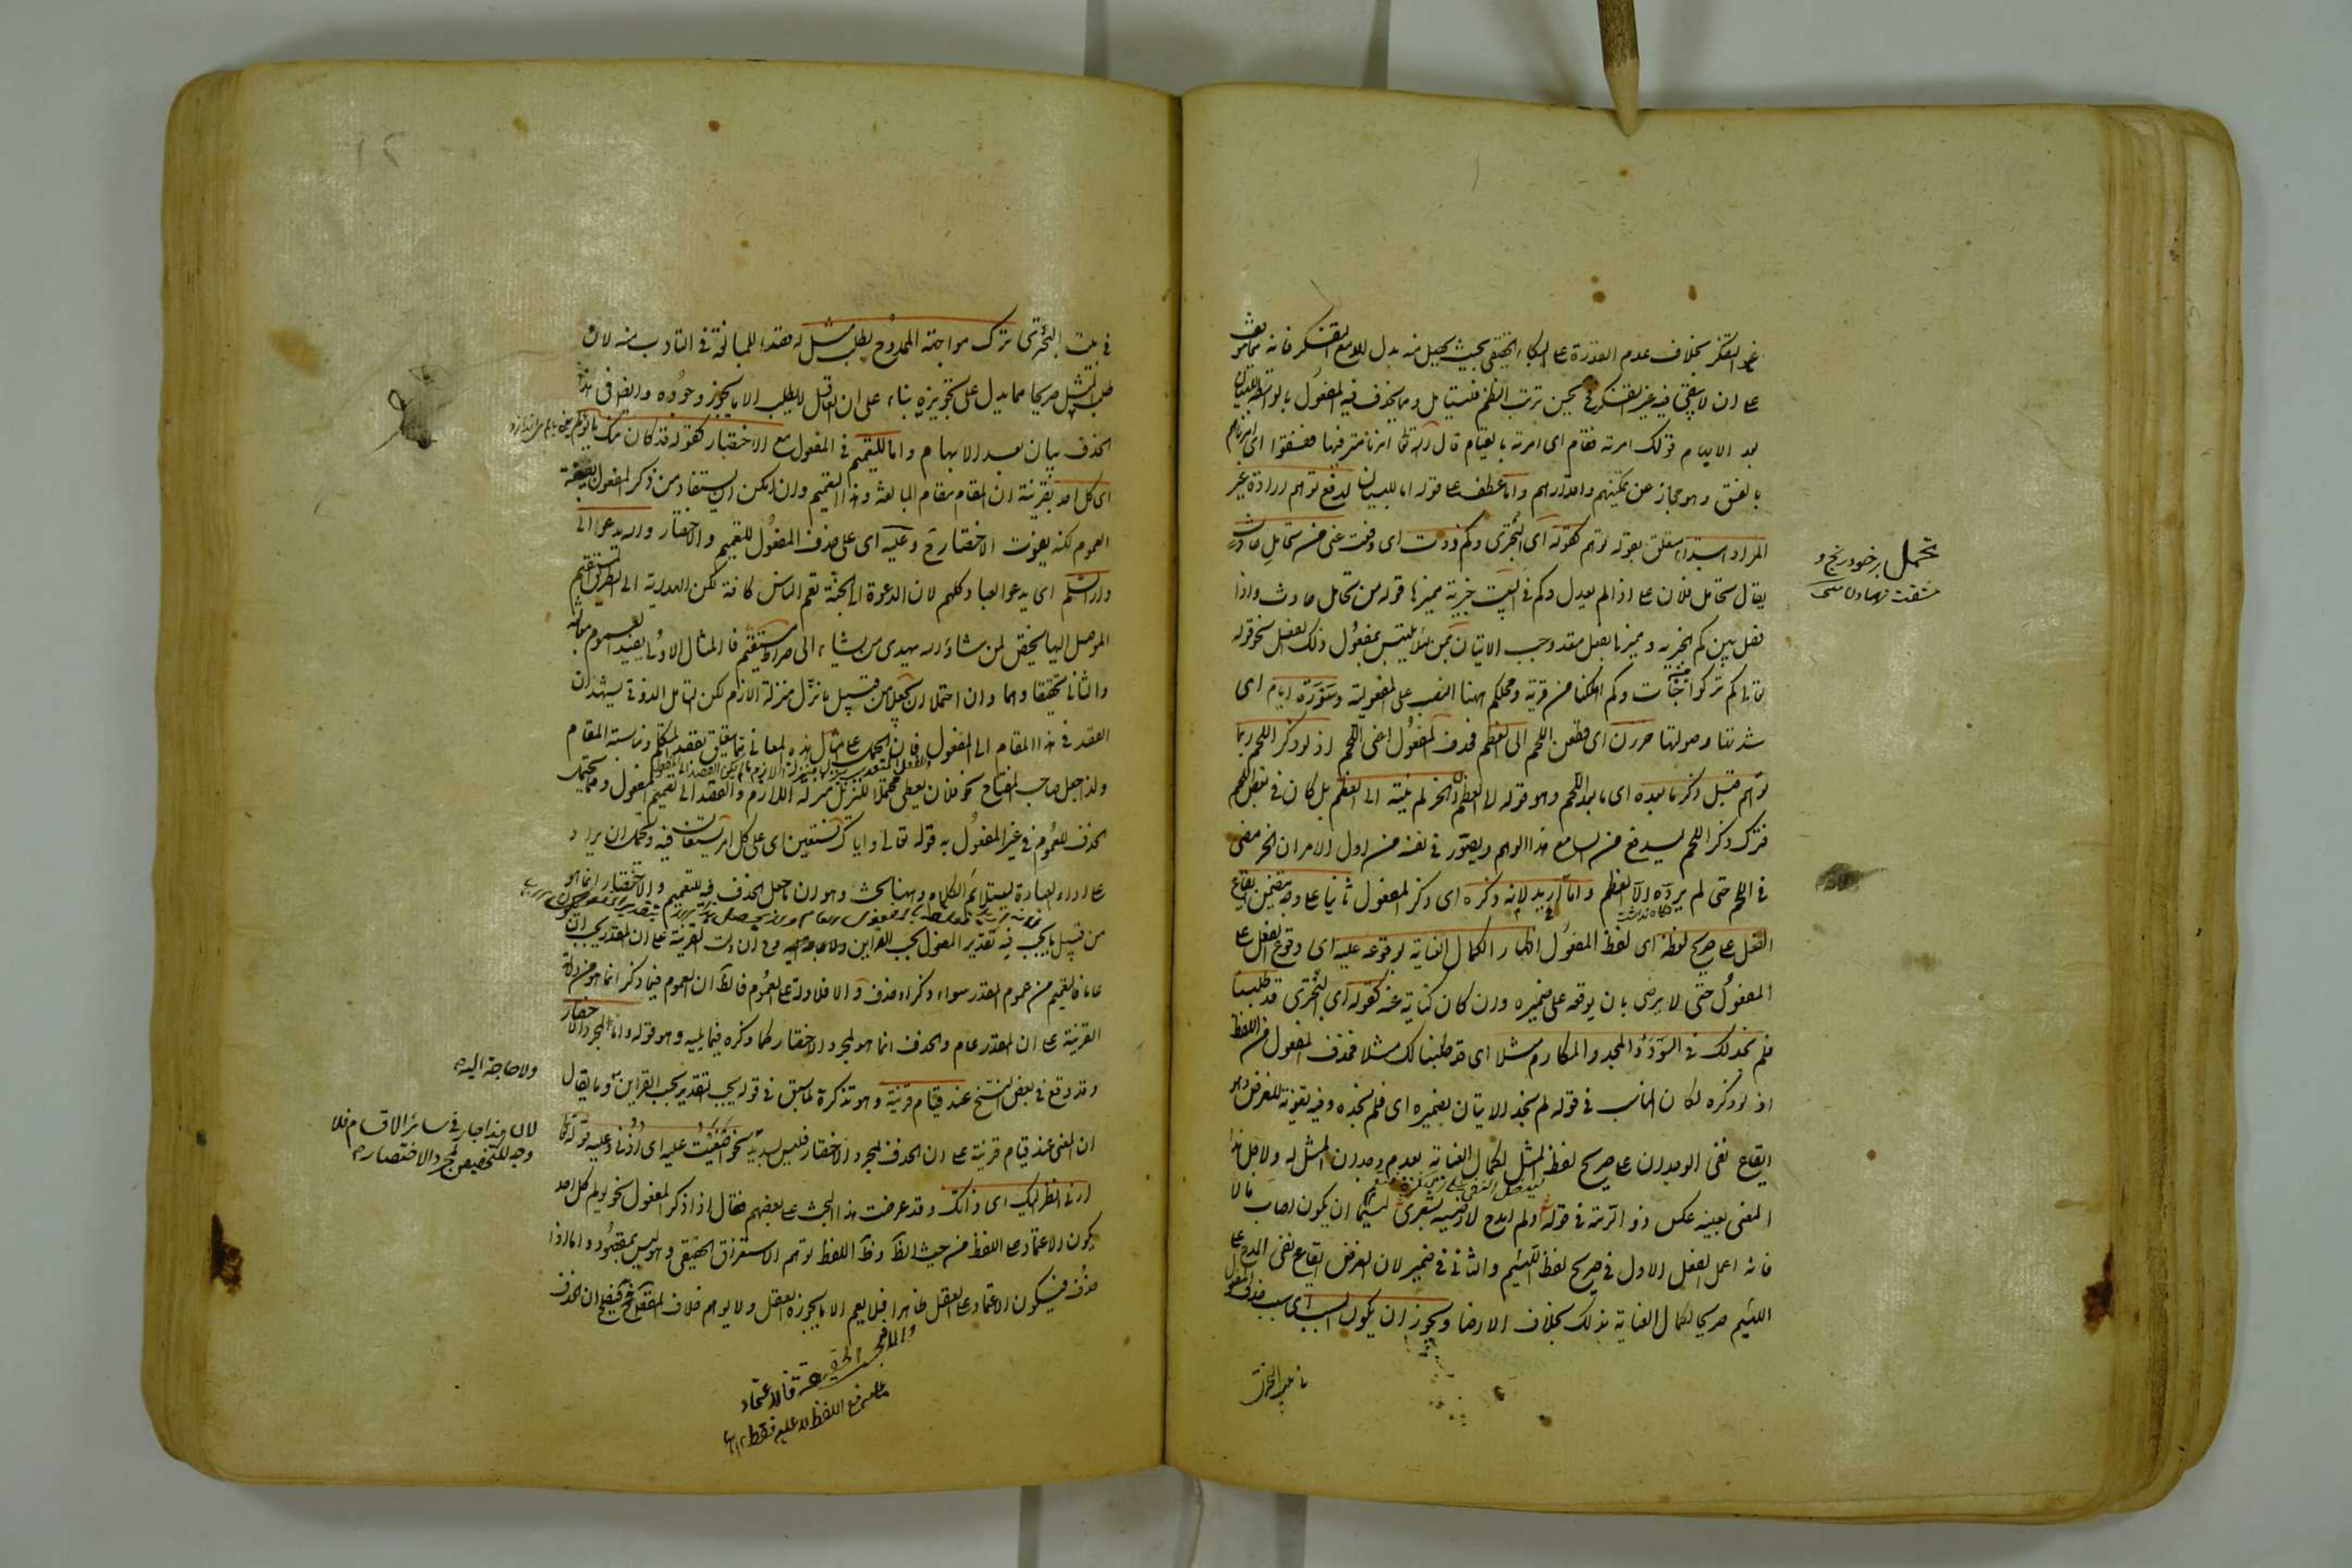 غير التفكر بخلاف عدم القدرة على البكاء الحقيقي بحيث يحصل منه بدل الدمع التفكر فانه مما يتوقف
على ان لا يبقى فيه غير التفكر في حين ترتب النظم فليتامل ومما يحذف فيه المفعول بالواسطة للبيان
بعد الابهام قولك امرته فقام اى امرته بالقيام قال الله تعالى امرنا مترفيها ففسقوا اى امرناهم
بالفسق وهو مجاز عن تمكينهم واقدارهم واما عطف على قوله اما للبيان لدفع توهم ارادة غير
المراد ابتداء متعلق بقوله توهم كقوله اى البحترى وكم ذدت اى دفعت عنى من تحامل حادث
يقال تحامل فلان على اذا لم يعدل وكم في البيت خبرية مميزها قوله من تحامل حادث واذا
فصل بين كم الخبرية ومميزها بفعل متعد وجب الاتيان بمن لئلا يلتبس بمفعول ذلك الفعل نحو قوله
تعالى كم تركوا من جنات وكم اهلكنا من قرية ومحلكم ههنا النصب على المفعولية وسورة ايام اى
شدتها وصولتها حززن اى قطعن اللحم الى العظم فحذف المفعول اعنى اللحم اذ لو ذكر اللحم ربما
توهم قبل ذكر ما بعده اى ما بعد اللحم وهو قوله الى العظم ان الحز لم ينته الى العظم بل كان في بعض اللحم
فترك ذكر اللحم ليدفع من السامع هذا الوهم ويصور في نفسه من اول الامر ان الحز مضى
في اللحم حتى لم يرده الا العظم واما لانه اريد ذكره اى ذكر المفعول ثانيا على وجه يتضمن ايقاع
الفعل على صريح لفظه اى لفظ المفعول اظهارا لكمال العناية بوقوعه عليه اى وقوع الفعل على
المفعول حتى لا يرضى بان يوقعه على ضميره وان كان كناية عنه كقوله اى البحترى قد طلبنا
فلم نجد لك في السودد والمجد والمكارم مثلا اى قد طلبنا لك مثلا فحذف المفعول من اللفظ
اذ لو ذكره لكان المناسب في قوله لم نجد الاتيان بضميره اى فلم نجده وفيه تفويت للغرض وهو
ايقاع نفى الوجدان على صريح لفظ المثل لكمال العناية بعدم وجدان المثل له ولاجل هذا
المعنى بعينه عكس ذو الرمة في قوله ولم امدح لارضيه بشعرى لئيما ان يكون اصاب مالا
فانه اعمل الفعل الاول في صريح لفظ اللئيم والثانى في ضميره لان الغرض ايقاع نفى المدح على
اللئيم صريحا لكمال العناية بذلك بخلاف الارضاء ويجوز ان يكون السبب اى سبب حذف المفعول
تحمل بر خود رنج و
مشقت نهادن
في بيت البحترى ترك مواجهة الممدوح بطلب مثل له قصدا للمبالغة في التادب منه لان
طلب المثل صريحا مما يدل على تجويزه بناء على ان العاقل لا يطلب الا ما يجوز وجوده وايضا في هذا
الحذف بيان بعد الابهام واما للتعميم في المفعول مع الاختصار كقوله قد كان منك ما يولم
اى كل احد بقرينة ان المقام مقام المبالغة وهذا التعميم وان امكن ان يستفاد من ذكر المفعول بصيغة
العموم لكنه يفوت الاختصار ح وعليه اى على حذف المفعول للتعميم والاختصار والله يدعوا الى
دار السلم اى يدعو العباد كلهم لان الدعوة الى الجنة تعم الناس كافة لكن الهداية الى الطريق المستقيم
الموصل اليها يختص لمن شاء والله يهدى من يشاء الى صراط مستقيم فالمثال الاول يفيد العموم مبالغة
والثانى تحقيقا وهما وان احتملا ان يجعلا من قبيل ما نزل منزلة اللازم لكن التامل الذوقى يشهد ان
القصد في هذا المقام الى المفعول فان الحمل على امثال هذه المعانى مما يتعلق بقصد المتكلم ومناسبة المقام
ولذا جعل صاحب المفتاح نحو فلان يعطى محتملا للتنزيل منزلة اللازم والقصد الى تعميم المفعول ومما يحتمل
الحذف للعموم في غير المفعول به قوله تعالى واياك نستعين اى على كل امر يستعان فيه ويحتمل ان يراد
على اداء العبادة ليتلائم الكلام وههنا بحث وهو ان ما جعل الحذف فيه للتعميم والاختصار انما هو
من قبيل ما يجب فيه تقدير المفعول بحسب القراين وح ان دلت القرينة على ان المقدر يجب ان
عاما فالتعميم من عموم المقدر سواء ذكر او حذف والا فلا دلالة على العموم فالظ ان العموم فيما ذكر انما هو من دلالة
القرينة على ان المقدر عام والحذف انما هو لمجرد الاختصار كما ذكره فيما يليه وهو قوله واما لمجرد الاختصار
وقد وقع في بعض النسخ عند قيام قرينة وهو تذكرة لما سبق في قوله يجب التقدير بحسب القراين وما يقال
ان المعنى عند قيام قرينة على ان الحذف لمجرد الاختصار فليس بسديد نحو اصغيت عليه اى اذنى وعليه قوله تعالى
ارنى انظر اليك اى ذاتك وقد عرضت هذا البحث على بعضهم فقال اذا ذكر المفعول نحو يولم كل احد
يكون الاعتماد على اللفظ من حيث الظ وظ اللفظ توهم الاستغراق الحقيقى وهو ليس بمقصود واما اذا
حذف فيكون الاعتماد على العقل ظاهرا فلا يعم الا ما يجوزه العقل ولا يوهم خلاف المقصود
ولا حاجة اليه
لان هذا جار في سائر الاقسام فلا
وجه للتخصيص لمجرد الاختصار